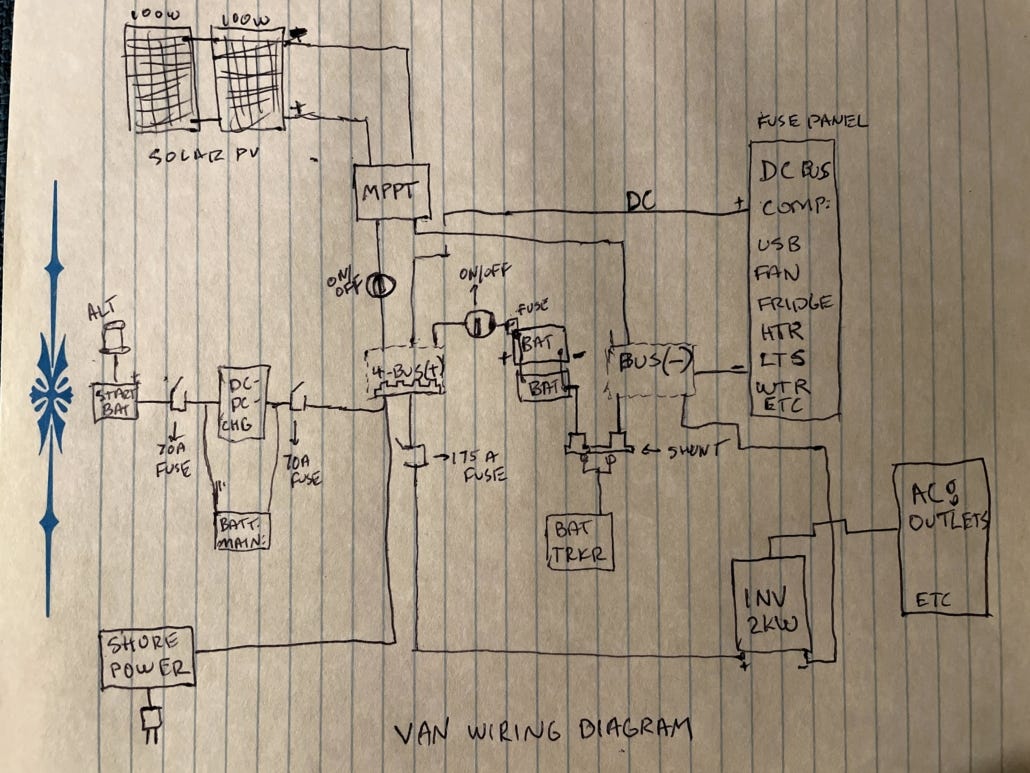 100W 100W
SOLAR PV
MPPT
ON/OFF
ON/OFF
FUSE
DC
+
FUSE PANEL
DC BUS
COMP:
USB
FAN
FRIDGE
HTR
LTS
WTR
ETC
ALT
START
BAT
+
70A
FUSE
DC-
DC-
CHG
70A
FUSE
BATT.
MAIN:
4-BUS(+)
175 A
FUSE
+
BAT
-
BAT
BUS(-)
-
SHUNT
BAT
TRKR
INV
2KW
+
-
AC
OUTLETS
ETC
SHORE
POWER
VAN WIRING DIAGRAM